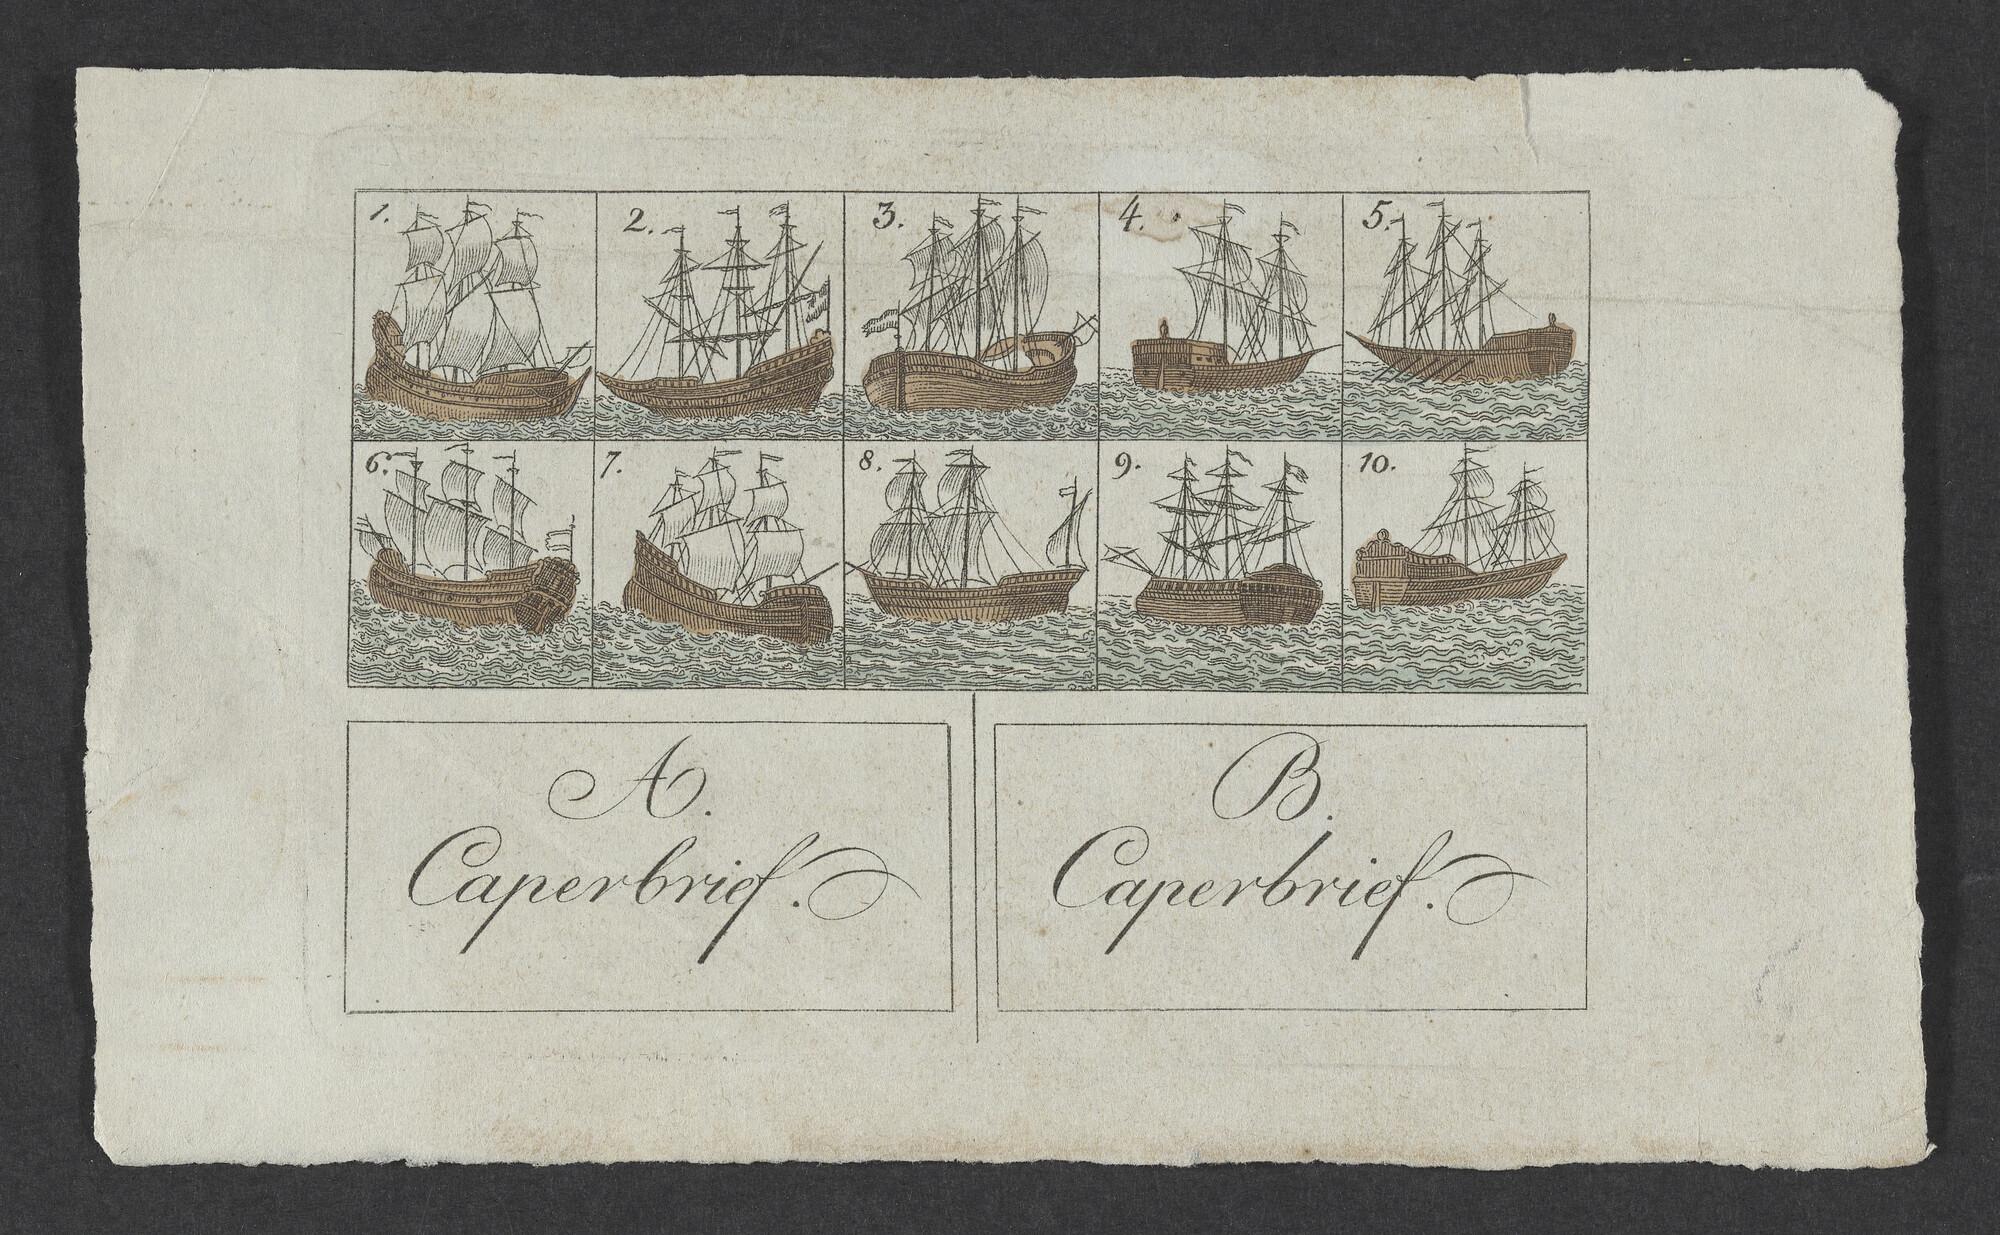 1. 2. 3. 4. 5.
6. 7. 8. 9. 10.
A.
Caperbrief.
B.
Caperbrief.